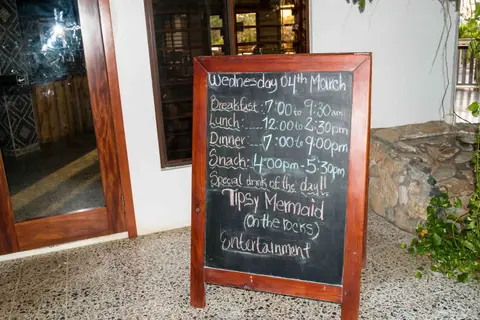 Wednesday 04th March
Breakfast: 7:00 to 9:30am
Lunch: ..... 12:00 to 2:30pm
Dinner: ... 7:00 to 9:00pm
Snack: 4:00pm - 5:30pm
Special drink of the day!!
Tipsy Mermaid
(on the rocks)
Entertainment